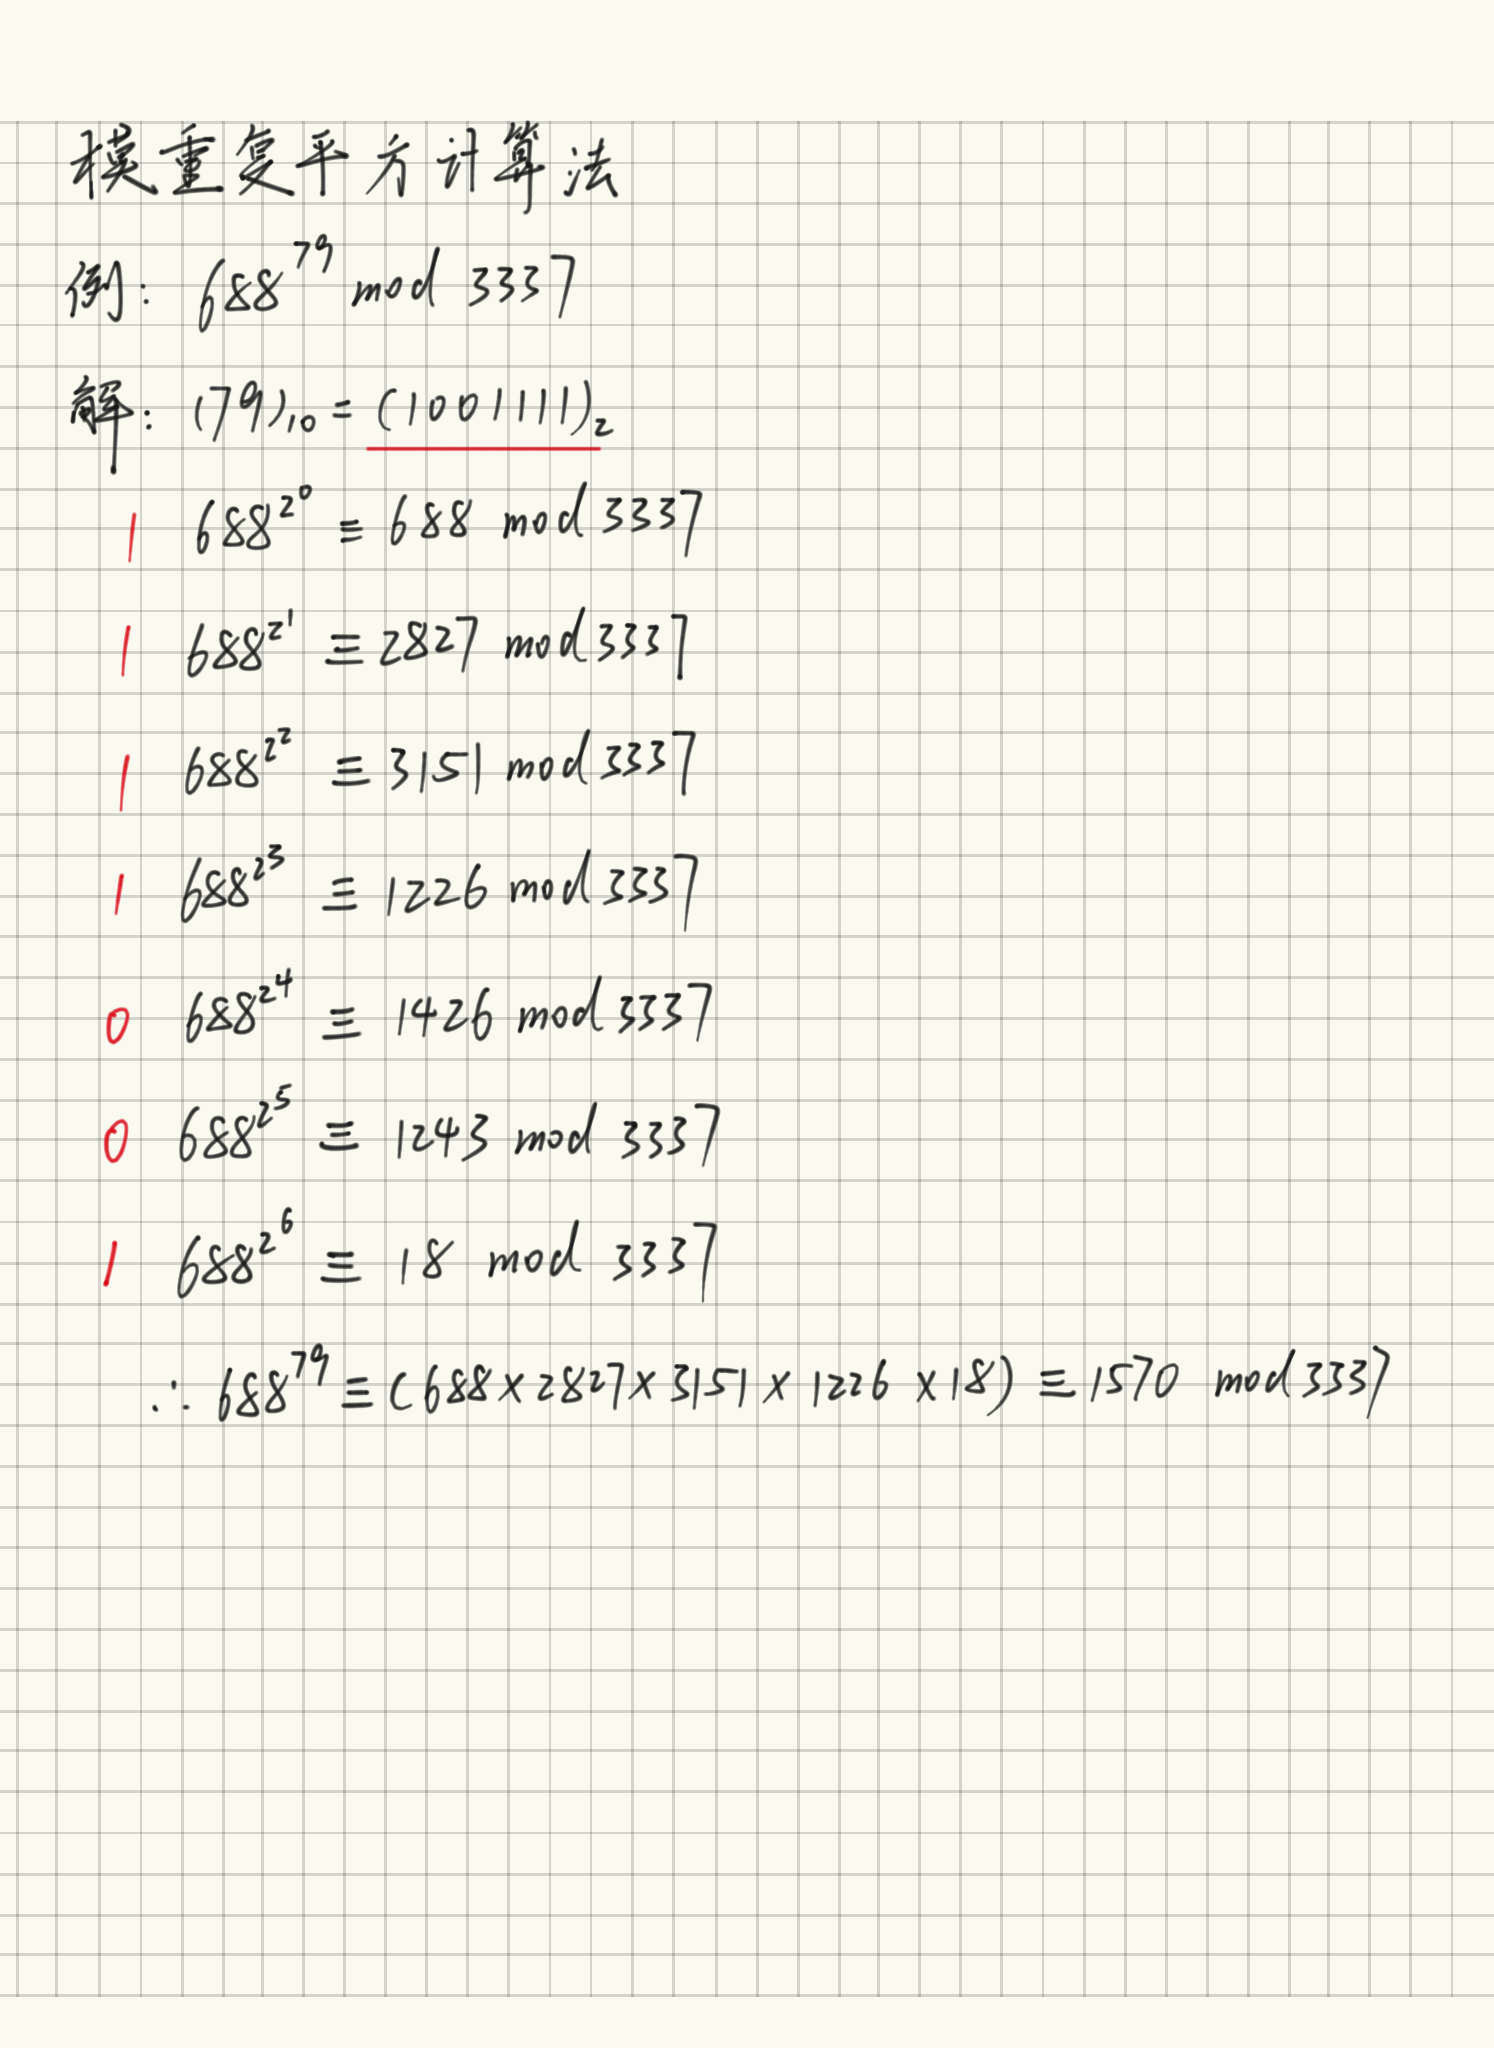 模重复平方计算法
例: 688^79 mod 3337
解: (79)₁₀ = (1001111)₂
1 688^2^0 ≡ 688 mod 3337
1 688^2^1 ≡ 2827 mod 3337
1 688^2^2 ≡ 3151 mod 3337
1 688^2^3 ≡ 1226 mod 3337
0 688^2^4 ≡ 1426 mod 3337
0 688^2^5 ≡ 1243 mod 3337
1 688^2^6 ≡ 18 mod 3337
∴ 688^79 ≡ (688×2827×3151×1226×18) ≡ 1570 mod 3337